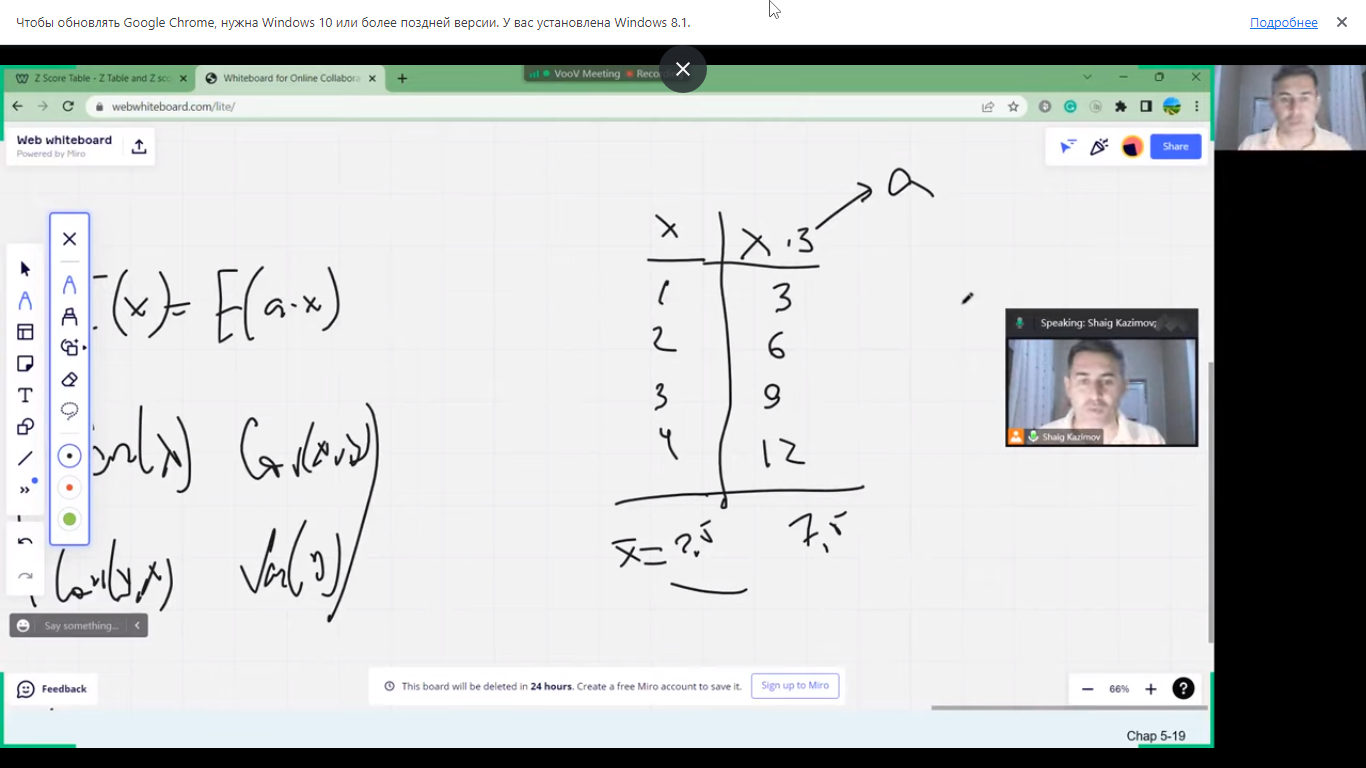 Чтобы обновлять Google Chrome, нужна Windows 10 или более поздней версии. У вас установлена Windows 8.1.
Подробнее
Z Score Table - Z Table and Z sco
Whiteboard for Online Collabora
VooV Meeting
Record
webwhiteboard.com/lite/
Web whiteboard
Powered by Miro
Share
a
x
x · 3
1
3
2
6
3
9
4
12
x̄ = 2,5
7,5
(x) = E(a·x)
(x)
Cov(x,y)
Cov(y,x)
Var(y)
Speaking: Shaig Kazimov;
Shaig Kazimov
T
Say something...
Feedback
This board will be deleted in 24 hours. Create a free Miro account to save it.
Sign up to Miro
66%
?
Chap 5-19